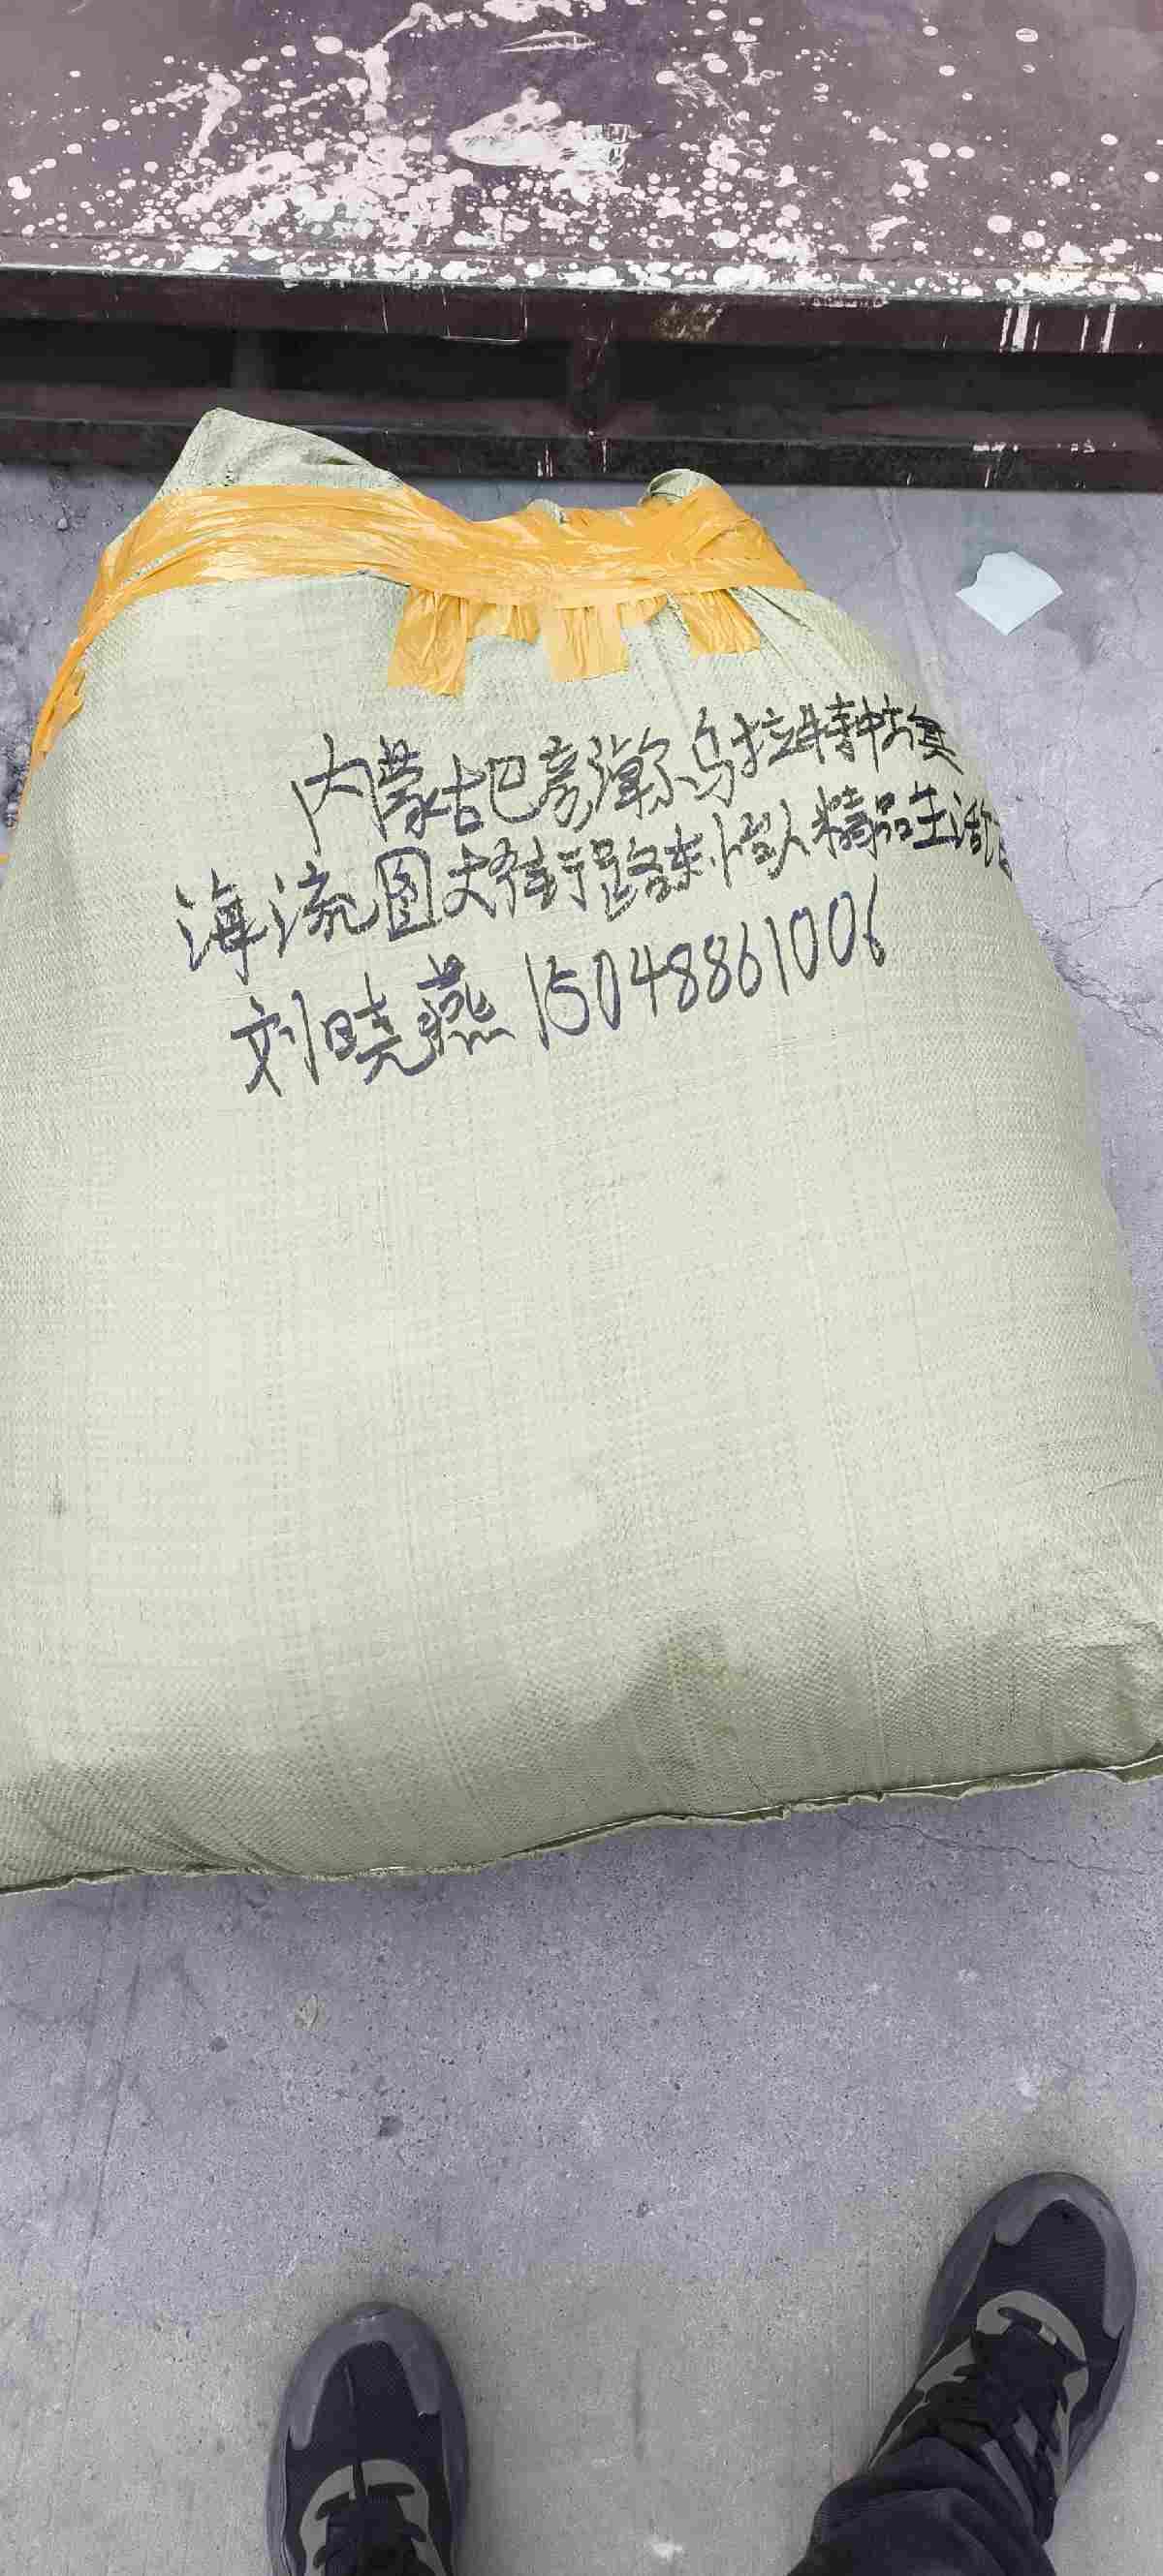 内蒙古巴彦淖尔乌拉特中旗
海流图大街路东 精品生活馆
刘晓燕 15048861006